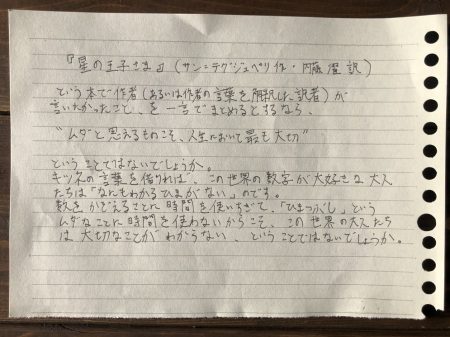 『星の王子さま』(サン=テグジュペリ作・内藤濯訳)
という本で作者(あるいは作者の言葉を解釈した訳者)が
言いたかったこと、を一言でまとめるとするなら、
"ムダと思えるものこそ、人生において最も大切"
ということではないでしょうか。
キツネの言葉を借りれば、この世界の数字が大好きな大人
たちは「なにもわかるひまがない」のです。
数をかぞえることに時間を使いすぎて、「ひまつぶし」という
ムダなことに時間を使わないからこそ、この世界の大人たち
は大切なことがわからない、ということではないでしょうか。